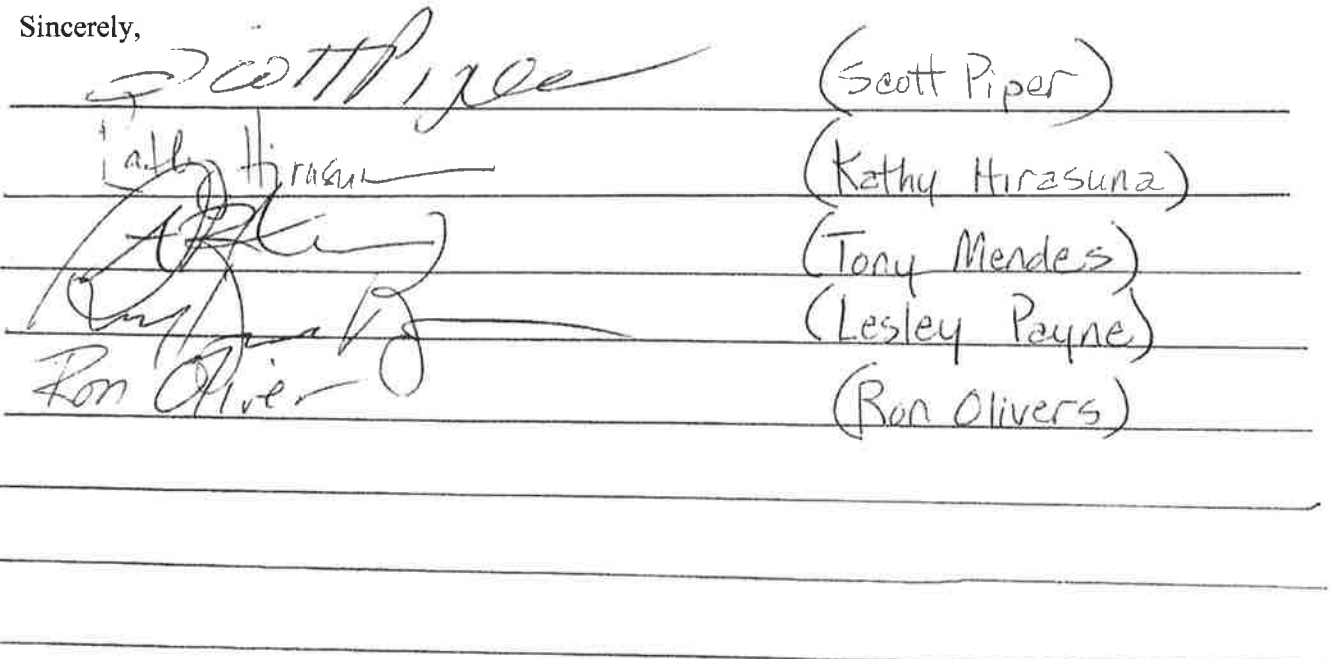 Sincerely,
Scott Piper (Scott Piper)
Kathy Hirasuna (Kathy Hirasuna)
(Tony Mendes)
(Lesley Payne)
Ron Oliver (Ron Olivers)